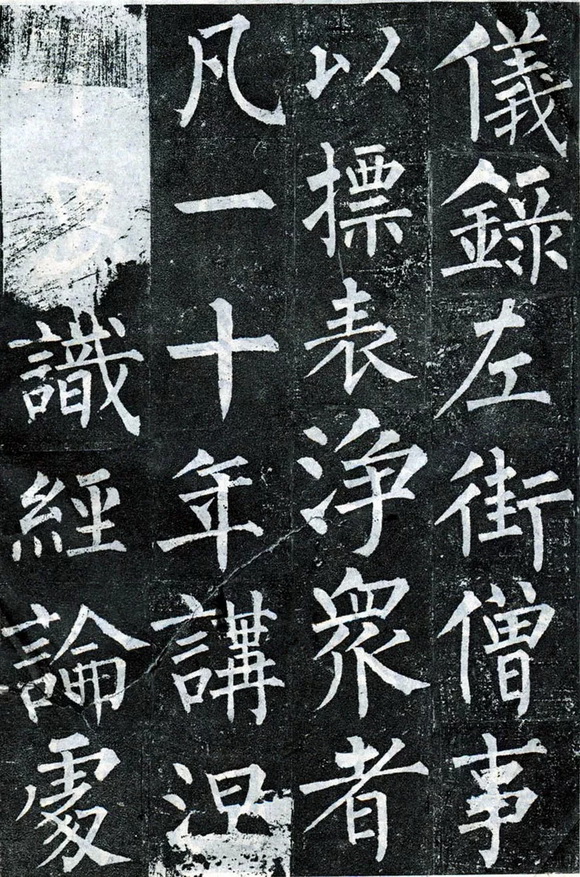 儀錄左街僧事
以標表淨衆者
凡一十年講涅
識經論處